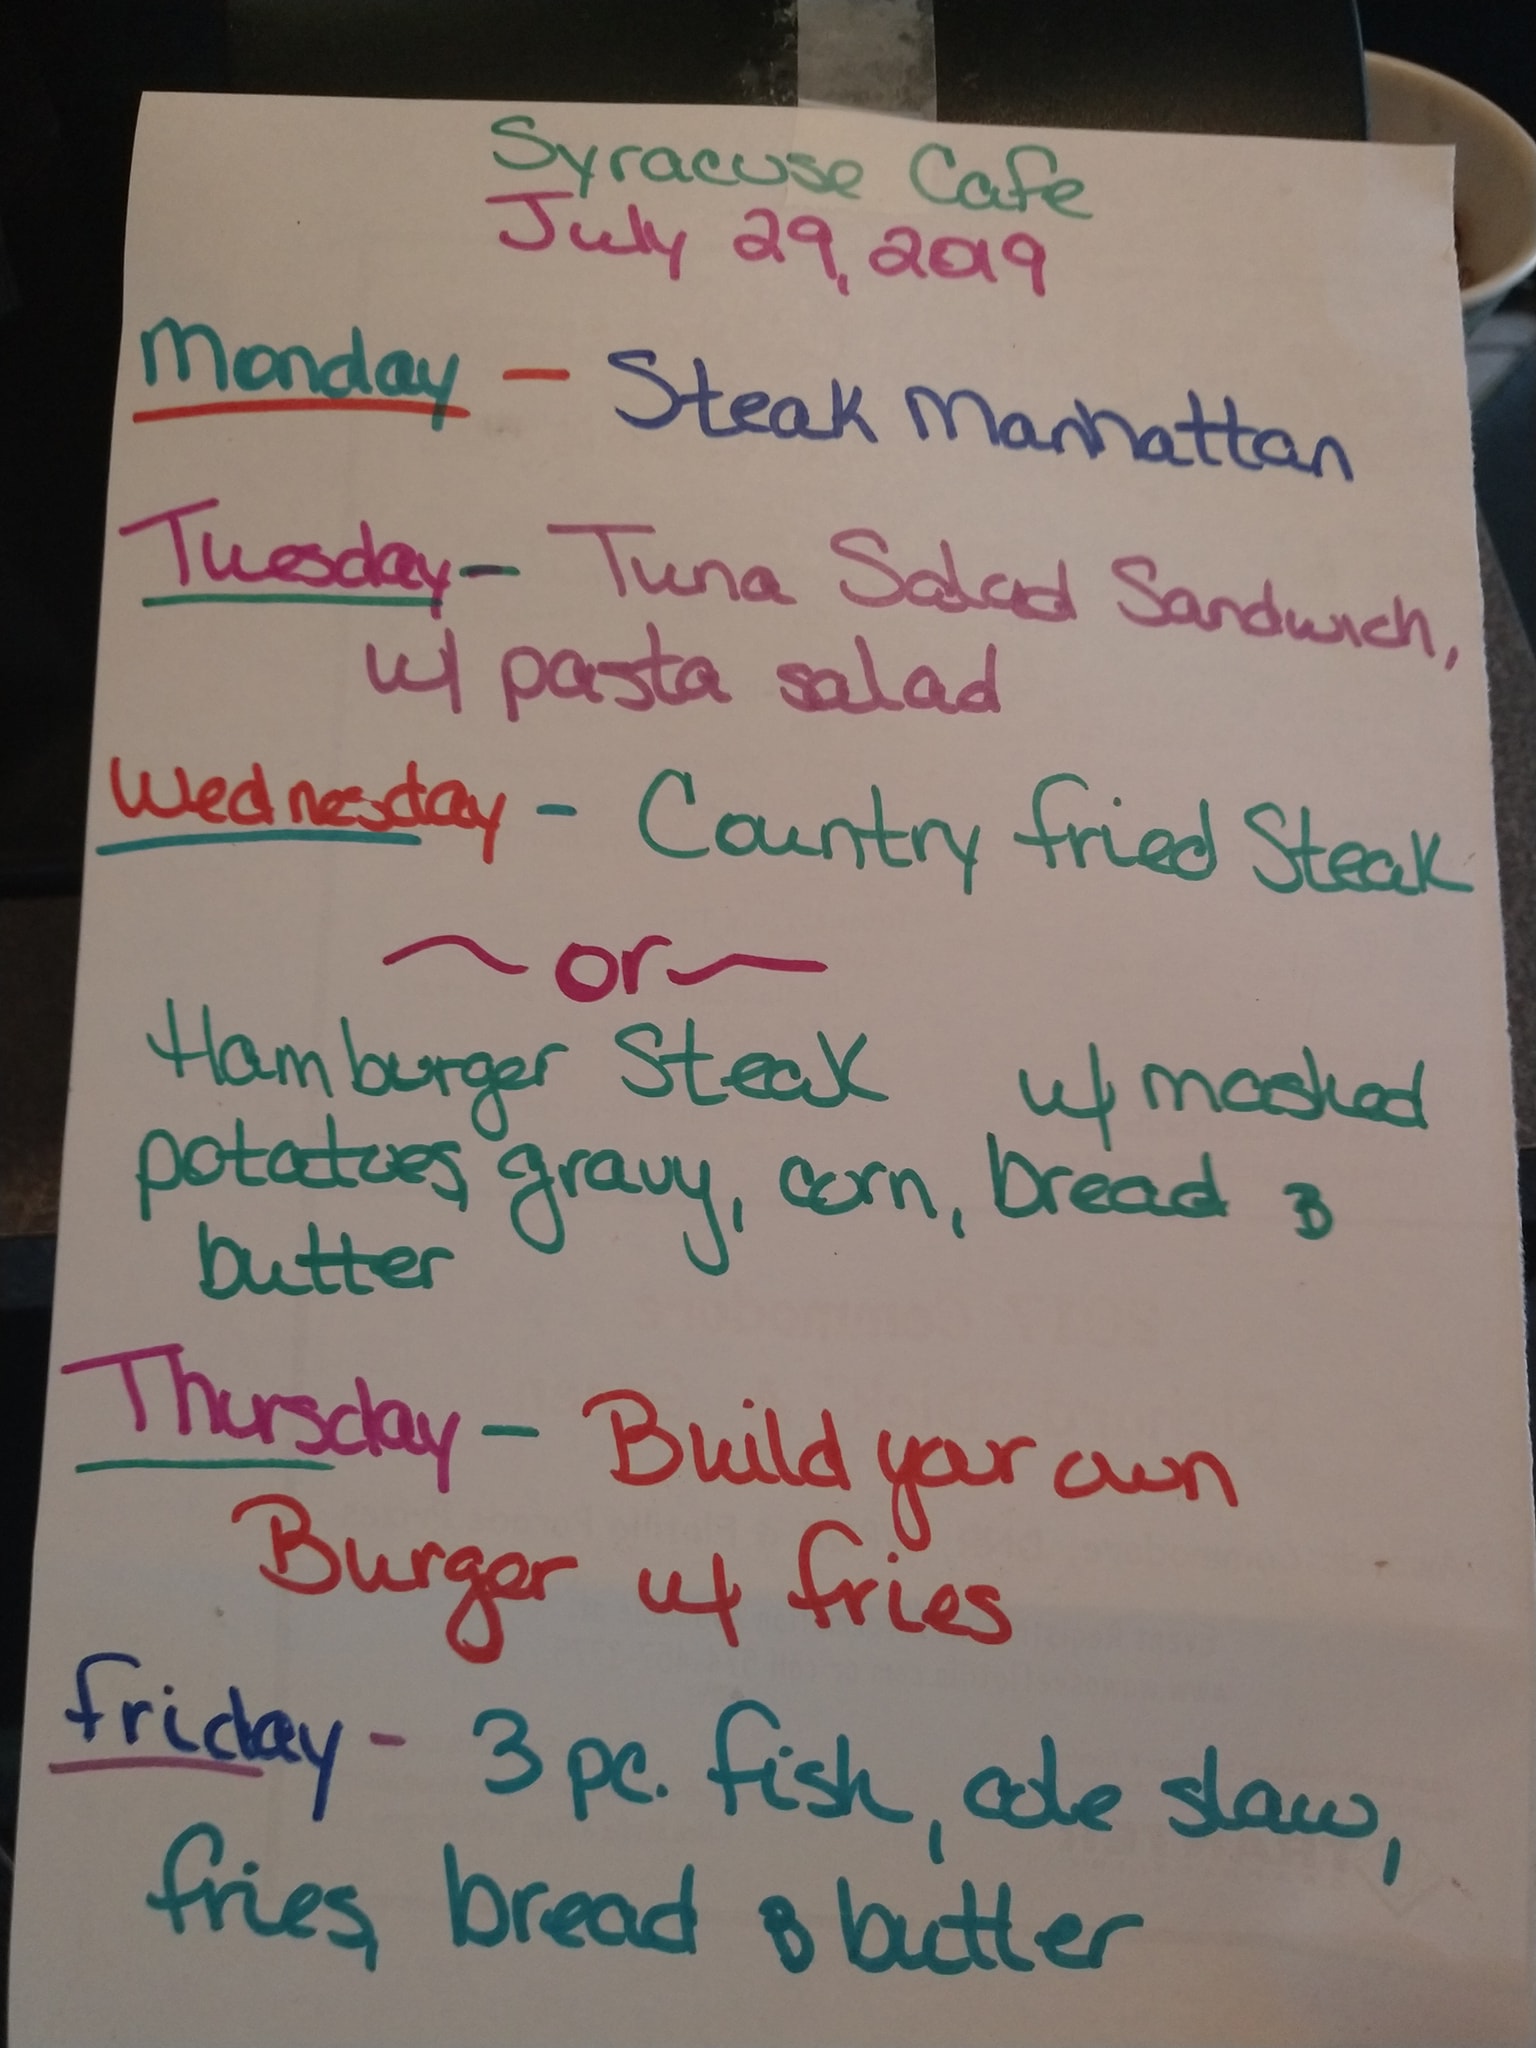 Syracuse Cafe
July 29, 2019
Monday - Steak Manhattan
Tuesday - Tuna Salad Sandwich,
w/ pasta salad
Wednesday - Country fried Steak
~ or ~
Hamburger Steak w/ mashed
potatoes, gravy, corn, bread &
butter
Thursday - Build your own
Burger w/ fries
Friday - 3 pc. fish, cole slaw,
fries, bread & butter